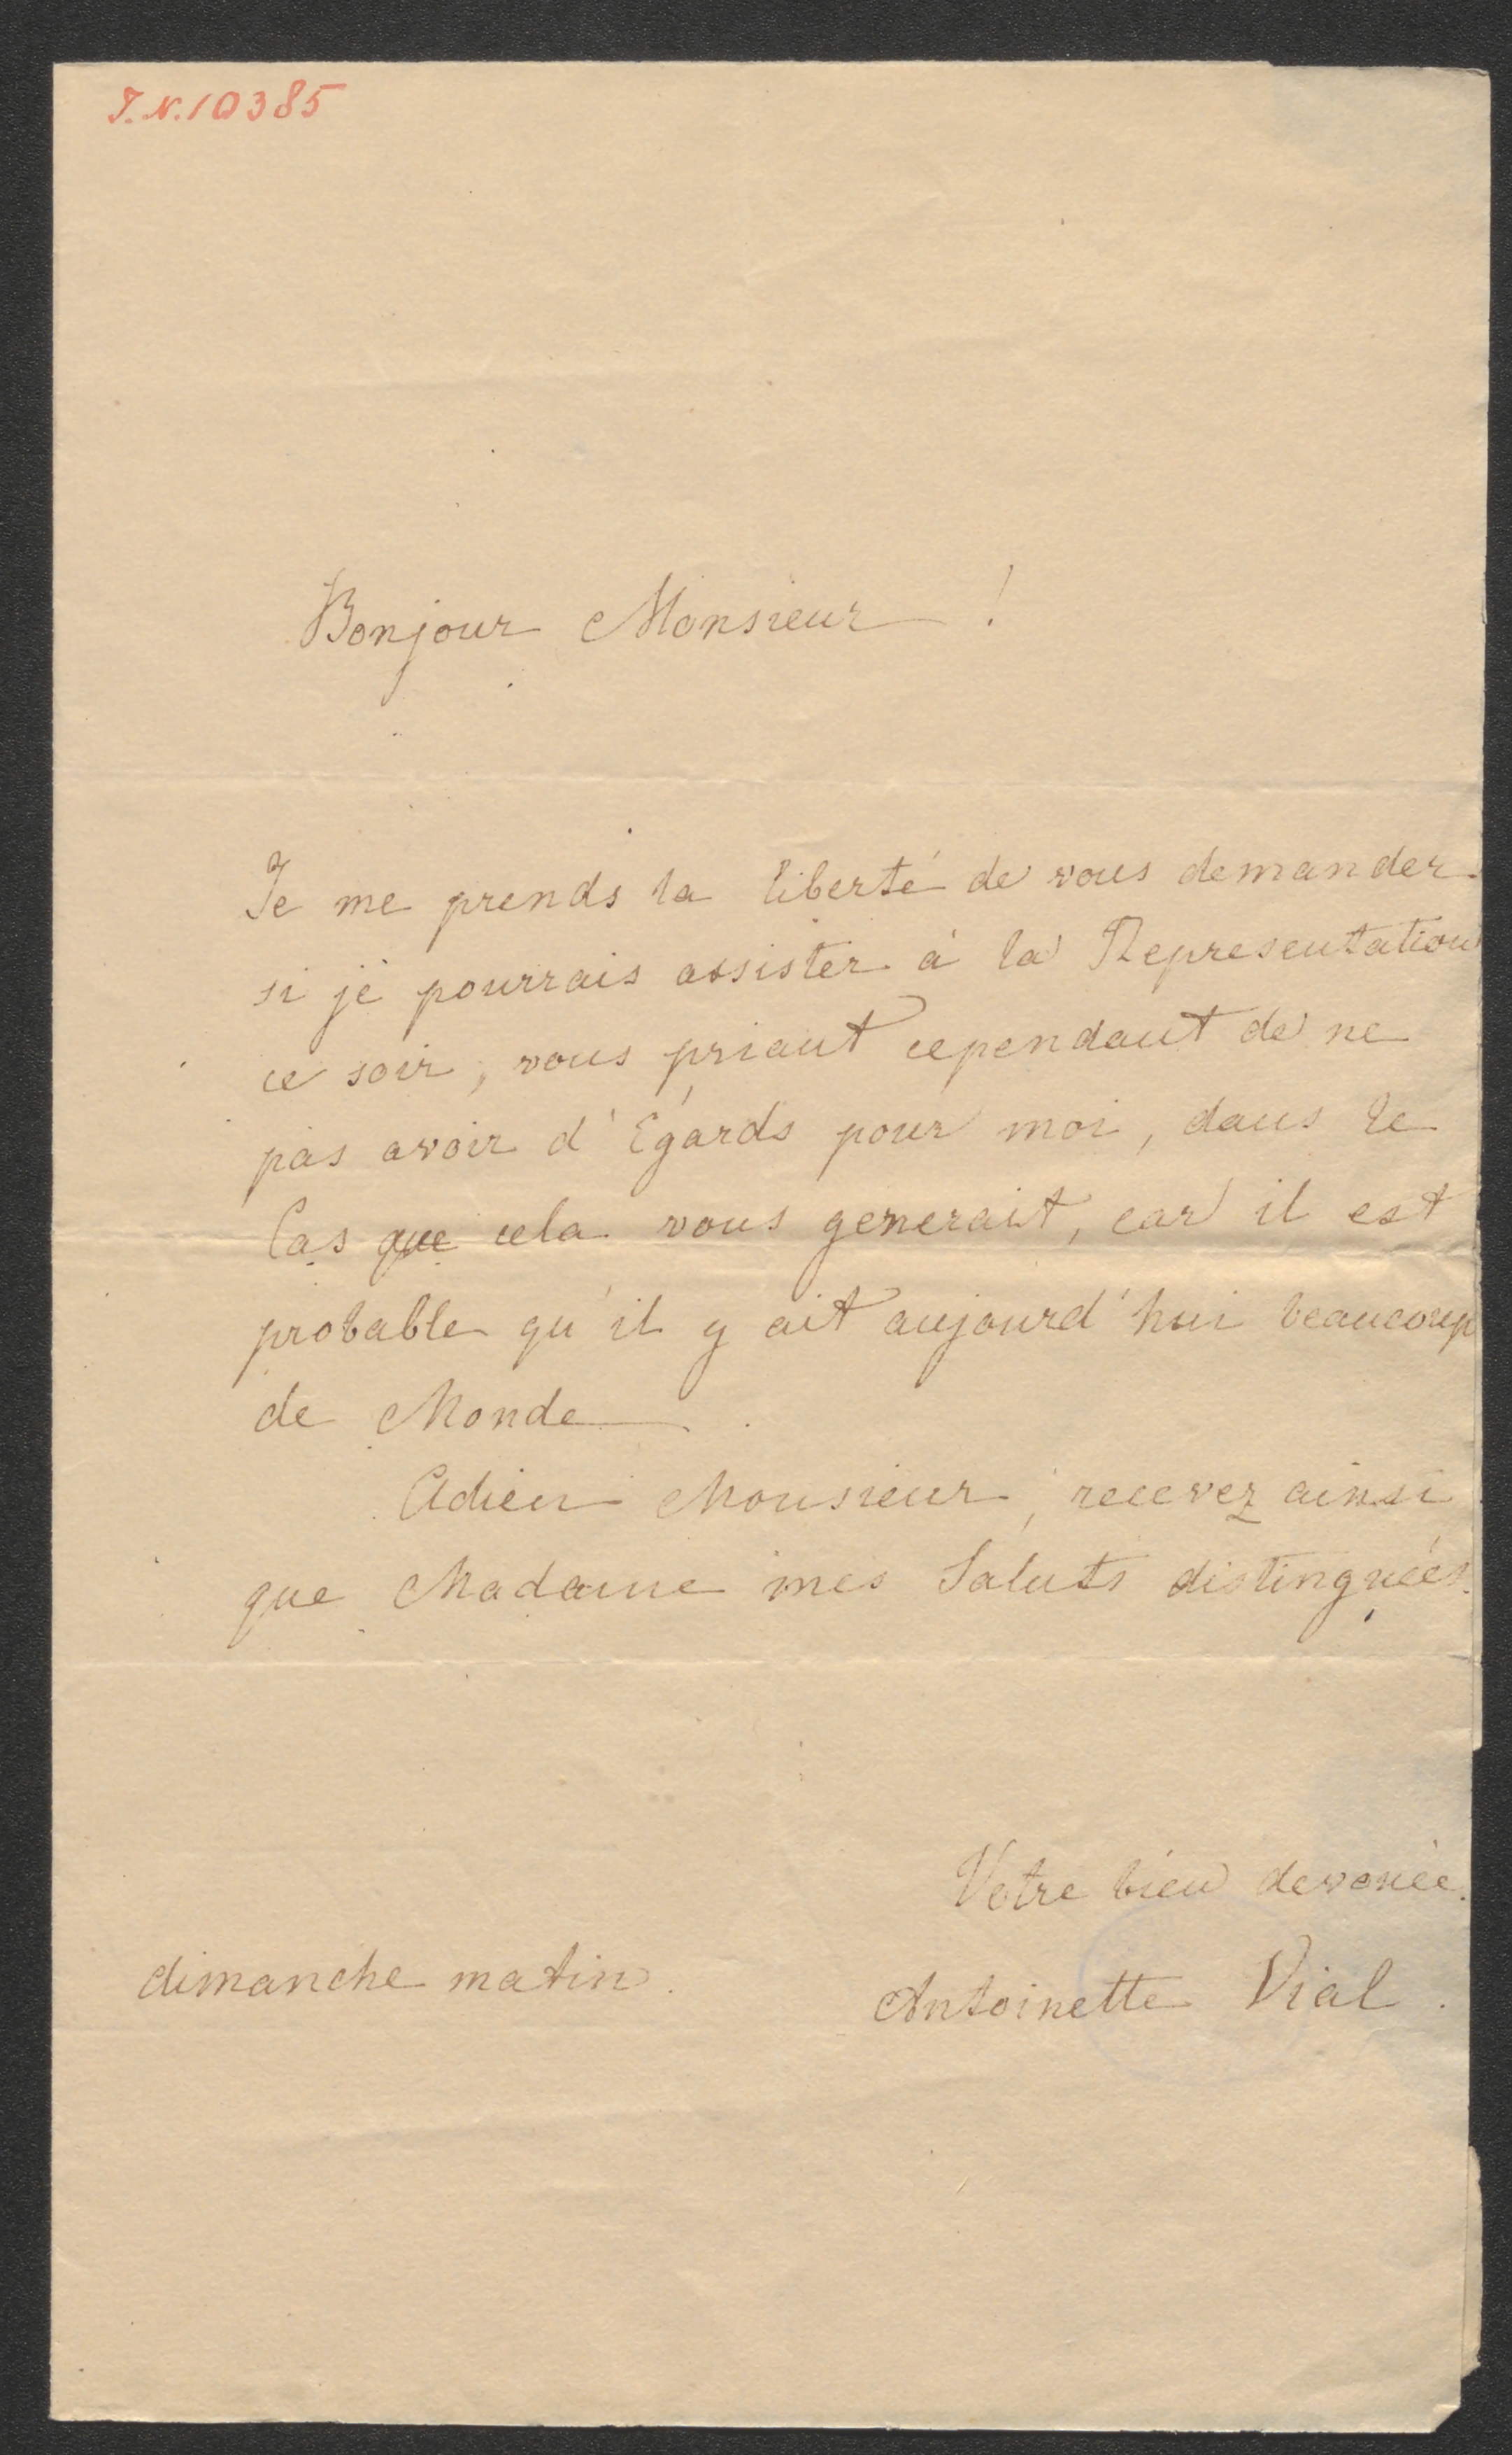 I.N.10385
Bonjour Monsieur !
Je me prends la liberté de vous demander
si je pourrais assister à la Representation
ce soir, vous priant cependant de ne
pas avoir d'Égards pour moi, dans le
Cas que cela vous generait, car il est
probable qu'il y ait aujourd'hui beaucoup
de Monde.
Adieu Monsieur, recevez ainsi
que Madame mes Saluts distinguées.
Votre bien devouée.
dimanche matin.
Antoinette Vial.